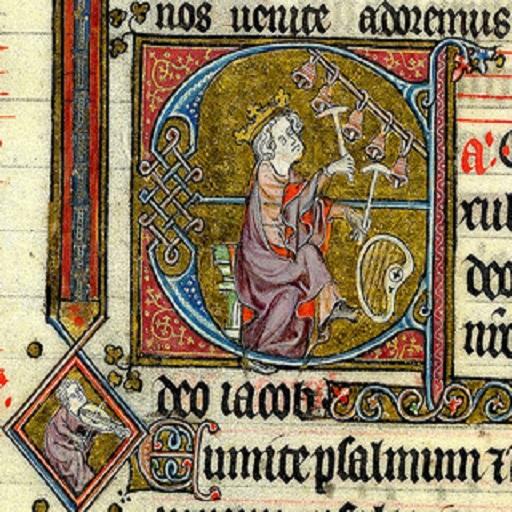 nos uenite adoremus
a:
Exul
deo
deo iacob
Sumite psalmum ⁊